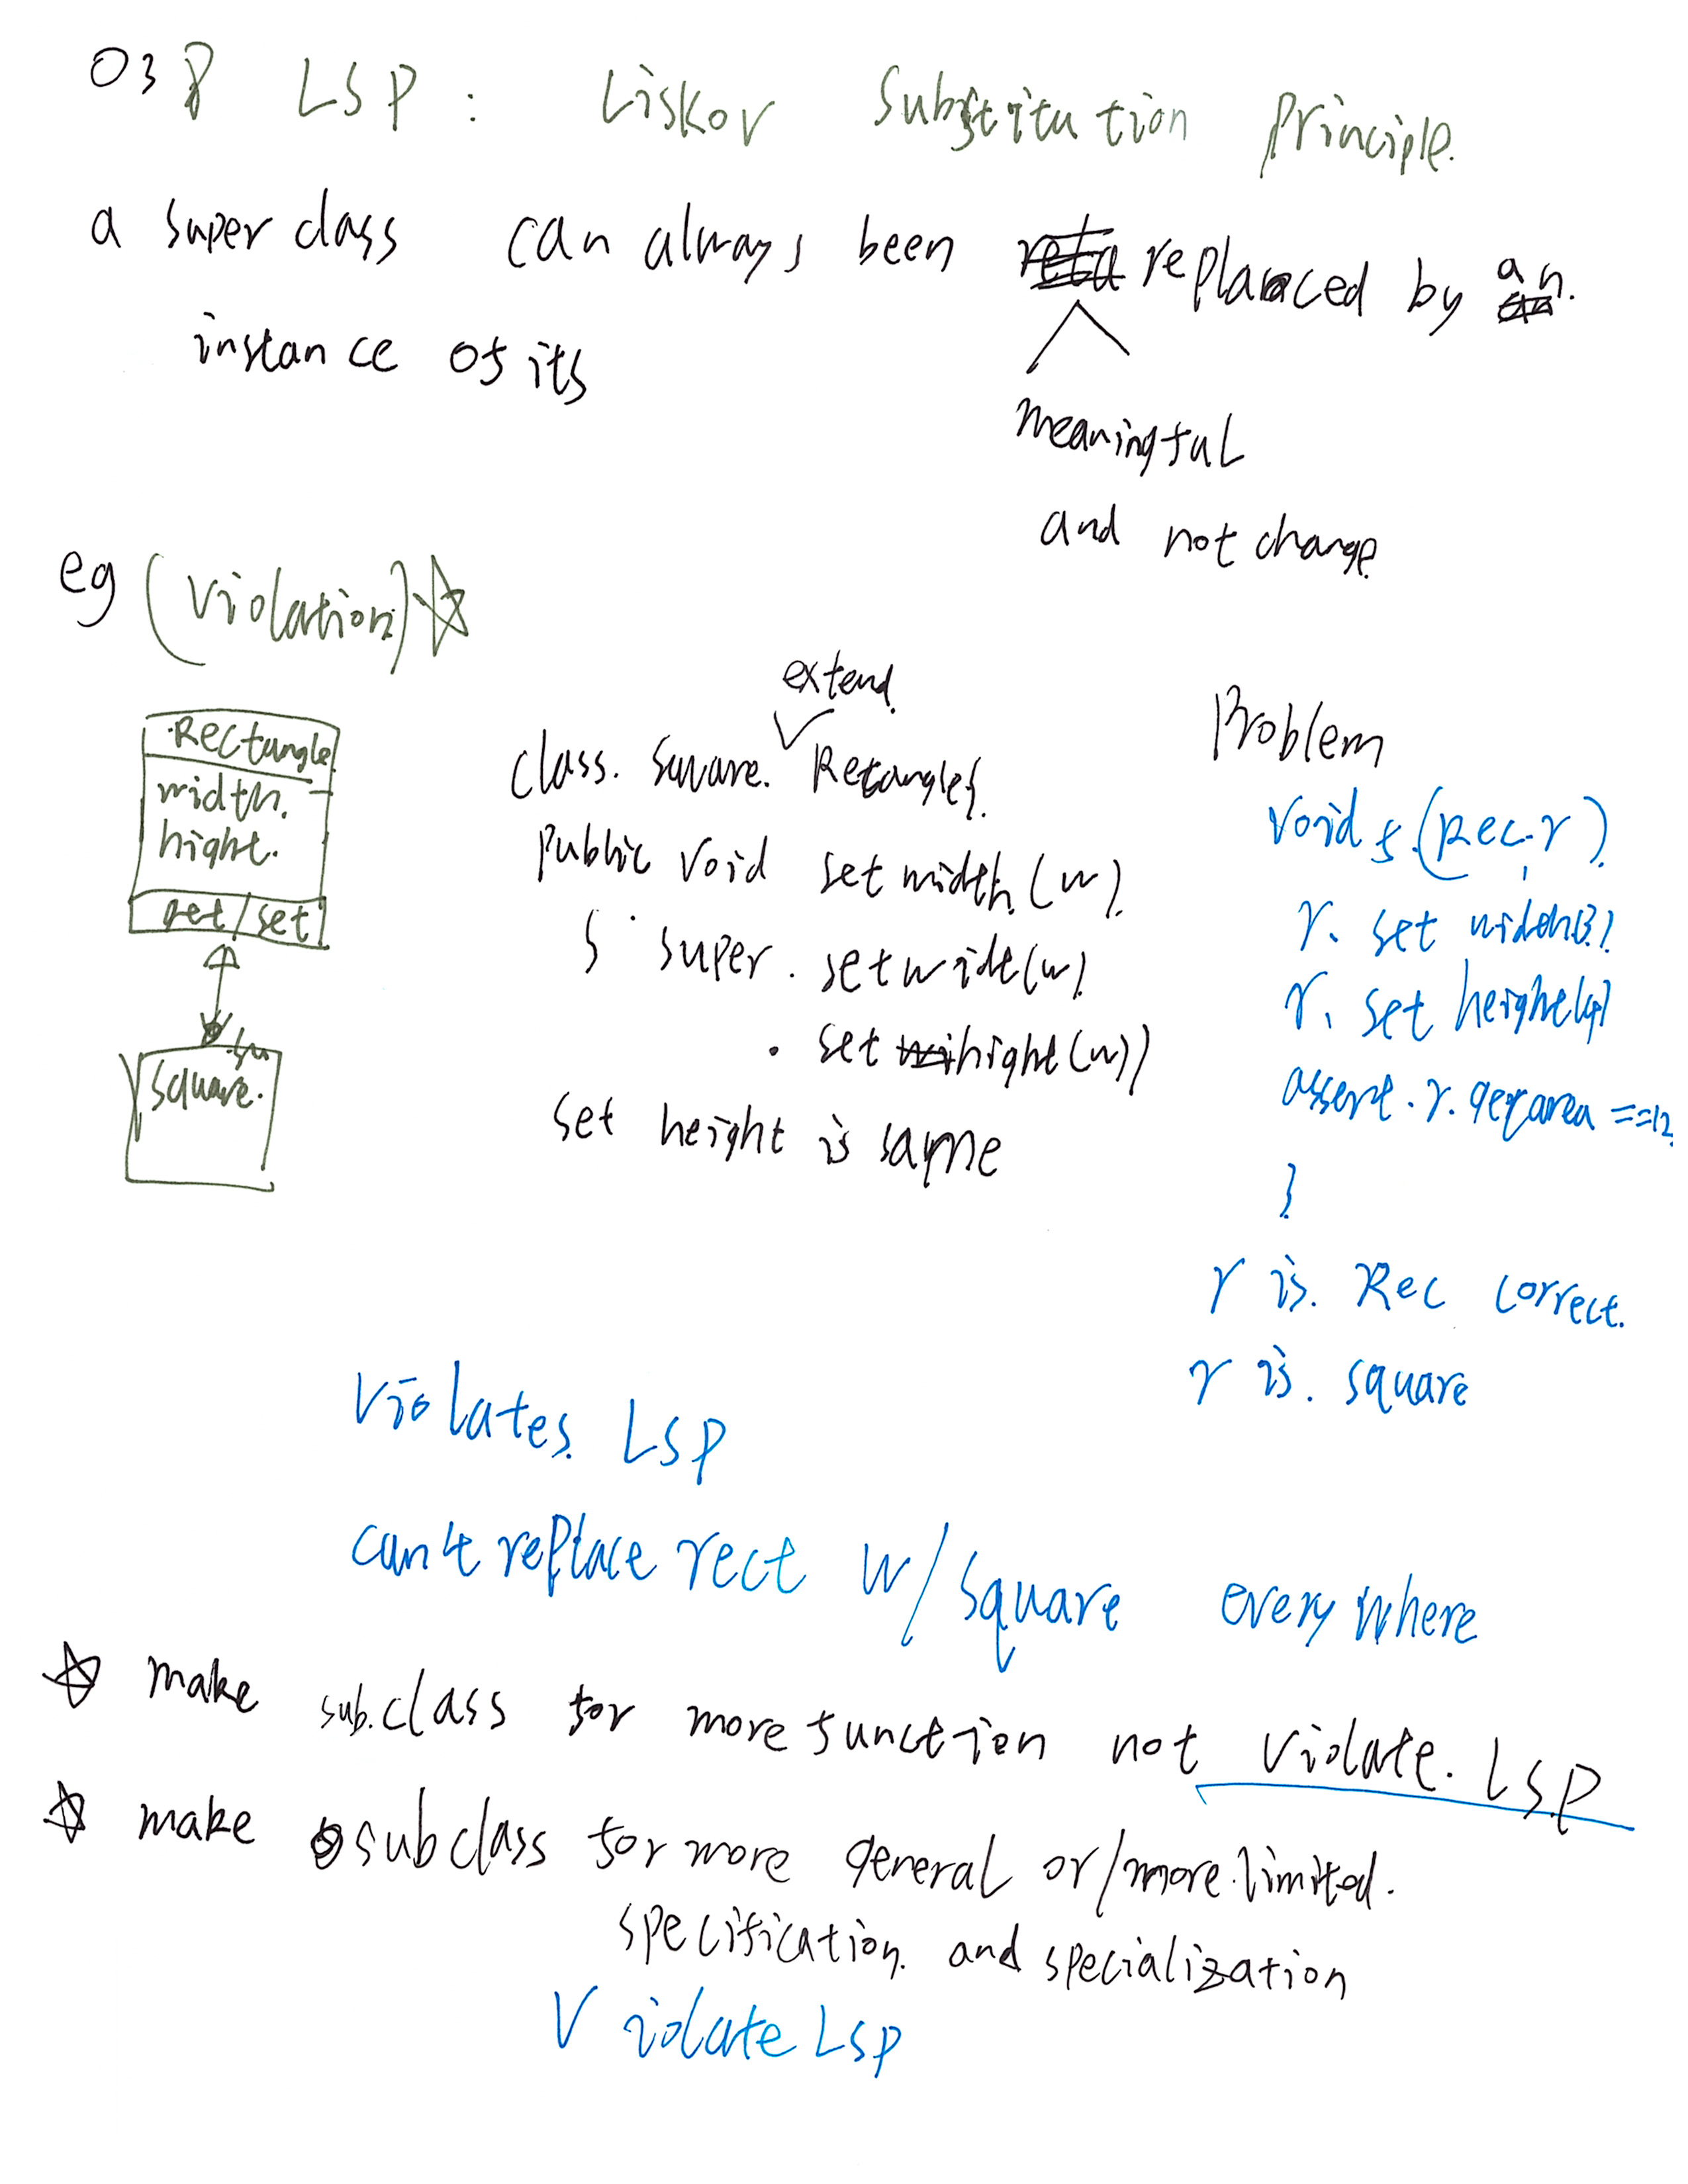 03 P LSP : Liskov Substitution Principle.
a super class can always been replaced by an.
instance of its
meaningful
and not change
eg (violation)
Rectangle
width.
hight.
get/set
square.
extend
class. Square. Retangle{
Public void set width (w)
{ super. setwidt(w)
. set hight(w)}
set height is same
Problem
void f (Rec, r)
r. set width(3)
r. set height(4)
assert. r. getarea ==12
}
r is. Rec correct.
r is. square
violates LSP
can't replace rect w/ square everywhere
make sub.class for more function not violate. LSP
make subclass for more general or/more limited.
specification and specialization
Violate LSP